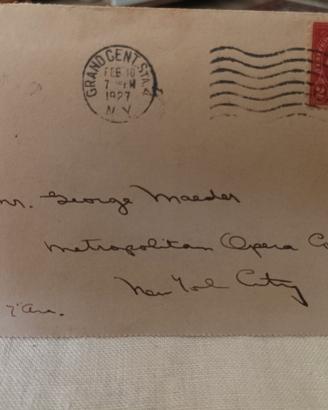 GRAND CENT. STA.
FEB 10
7 PM
1927
N. Y.
2
Mr. George Maeder
Metropolitan Opera Co
New York City
7th Ave.